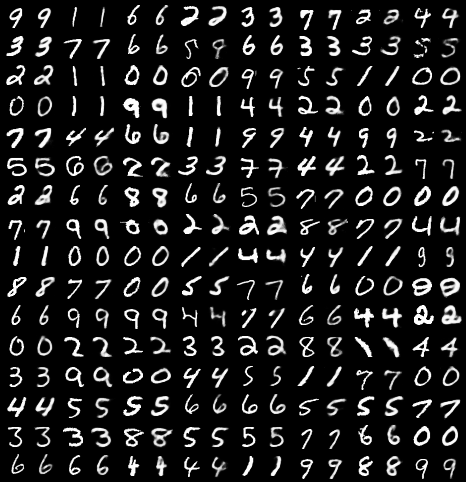 9 9 1 1 6 6 2 2 3 3 7 7 2 2 4 4
3 3 7 7 6 6 5 9 6 6 3 3 3 3 5 5
2 2 1 1 0 0 0 0 9 9 5 5 1 1 0 0
0 0 1 1 9 9 1 1 4 4 2 2 0 0 2 2
7 7 4 4 6 6 1 1 9 9 4 4 9 9 2 2
5 5 6 6 2 2 3 3 7 7 4 4 2 2 7 7
2 2 6 6 8 8 6 6 5 5 7 7 0 0 0 0
7 7 9 9 0 0 2 2 2 2 8 8 7 7 4 4
1 1 0 0 0 0 1 1 4 4 4 4 1 1 9 9
8 8 7 7 0 0 5 5 7 7 6 6 0 0 9 9
6 6 9 9 9 9 4 4 7 7 6 6 4 4 2 2
0 0 2 2 2 2 3 3 2 2 8 8 1 1 4 4
3 3 9 9 0 0 4 4 5 5 1 1 7 7 0 0
4 4 5 5 5 5 6 6 6 6 5 5 5 5 7 7
3 3 3 3 8 8 5 5 5 5 7 7 6 6 0 0
6 6 6 6 4 4 4 4 1 1 9 9 8 8 9 9